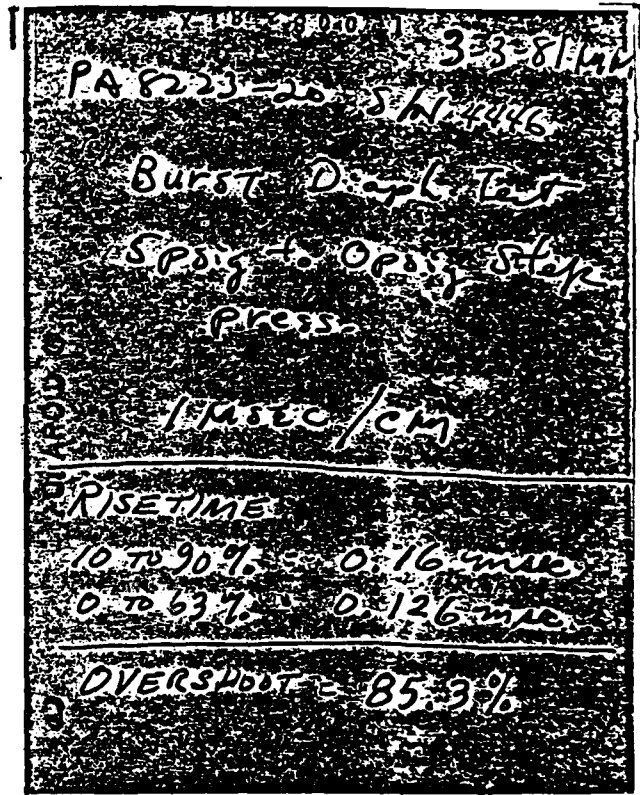 3-3-81
PA 8223-20 S/N 4446
Burst Diaph. Test
5psig to 0psig Step
press.
1 msec/cm
RISETIME
10 TO 90% - 0.16 msec
0 TO 63% - 0.126 msec
OVERSHOOT = 85.3%